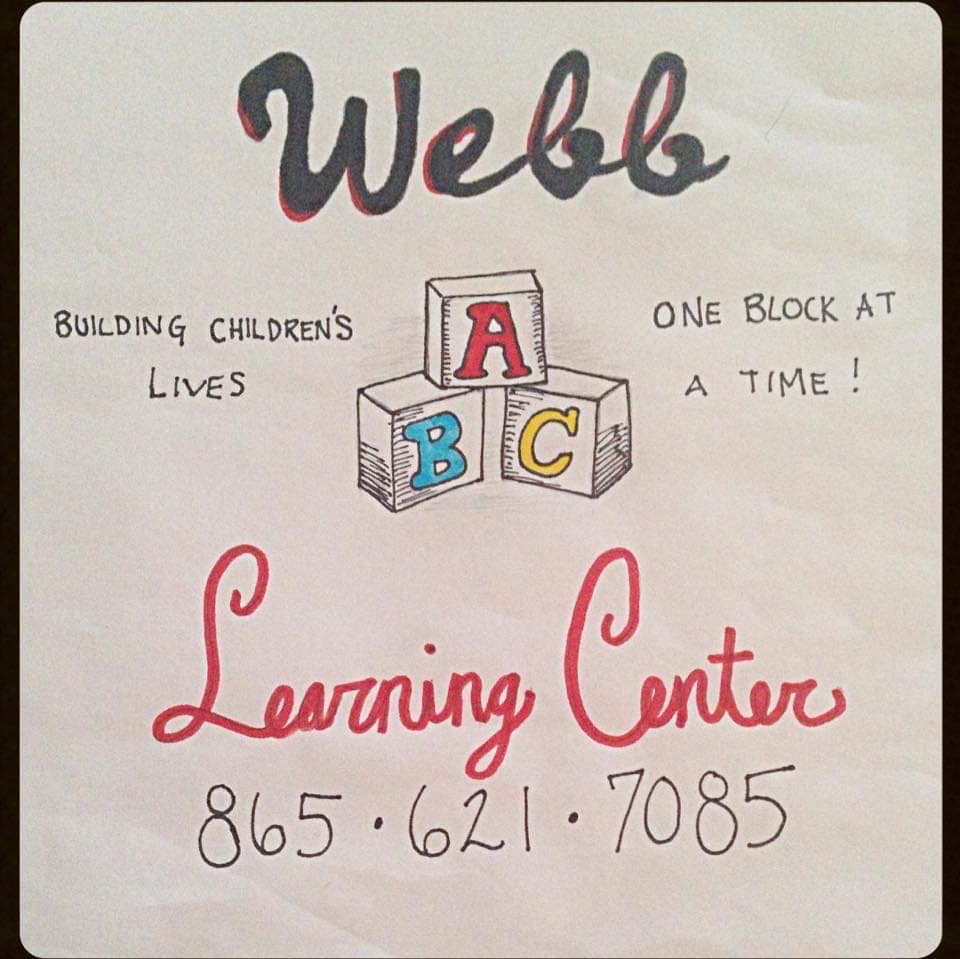 Webb
BUILDING CHILDREN'S
LIVES
ONE BLOCK AT
A TIME!
A
B C
Learning Center
865·621·7085